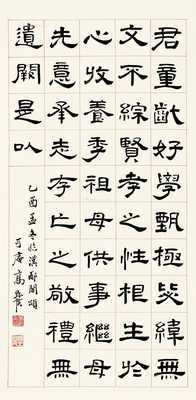 君童齔好學甄極毖緯無
文不綜賢孝之性根生於
心收養季祖母供事繼母
先意承志存亡之敬禮無
遺闕是以
乙酉孟冬臨漢郙閣頌
可庵高